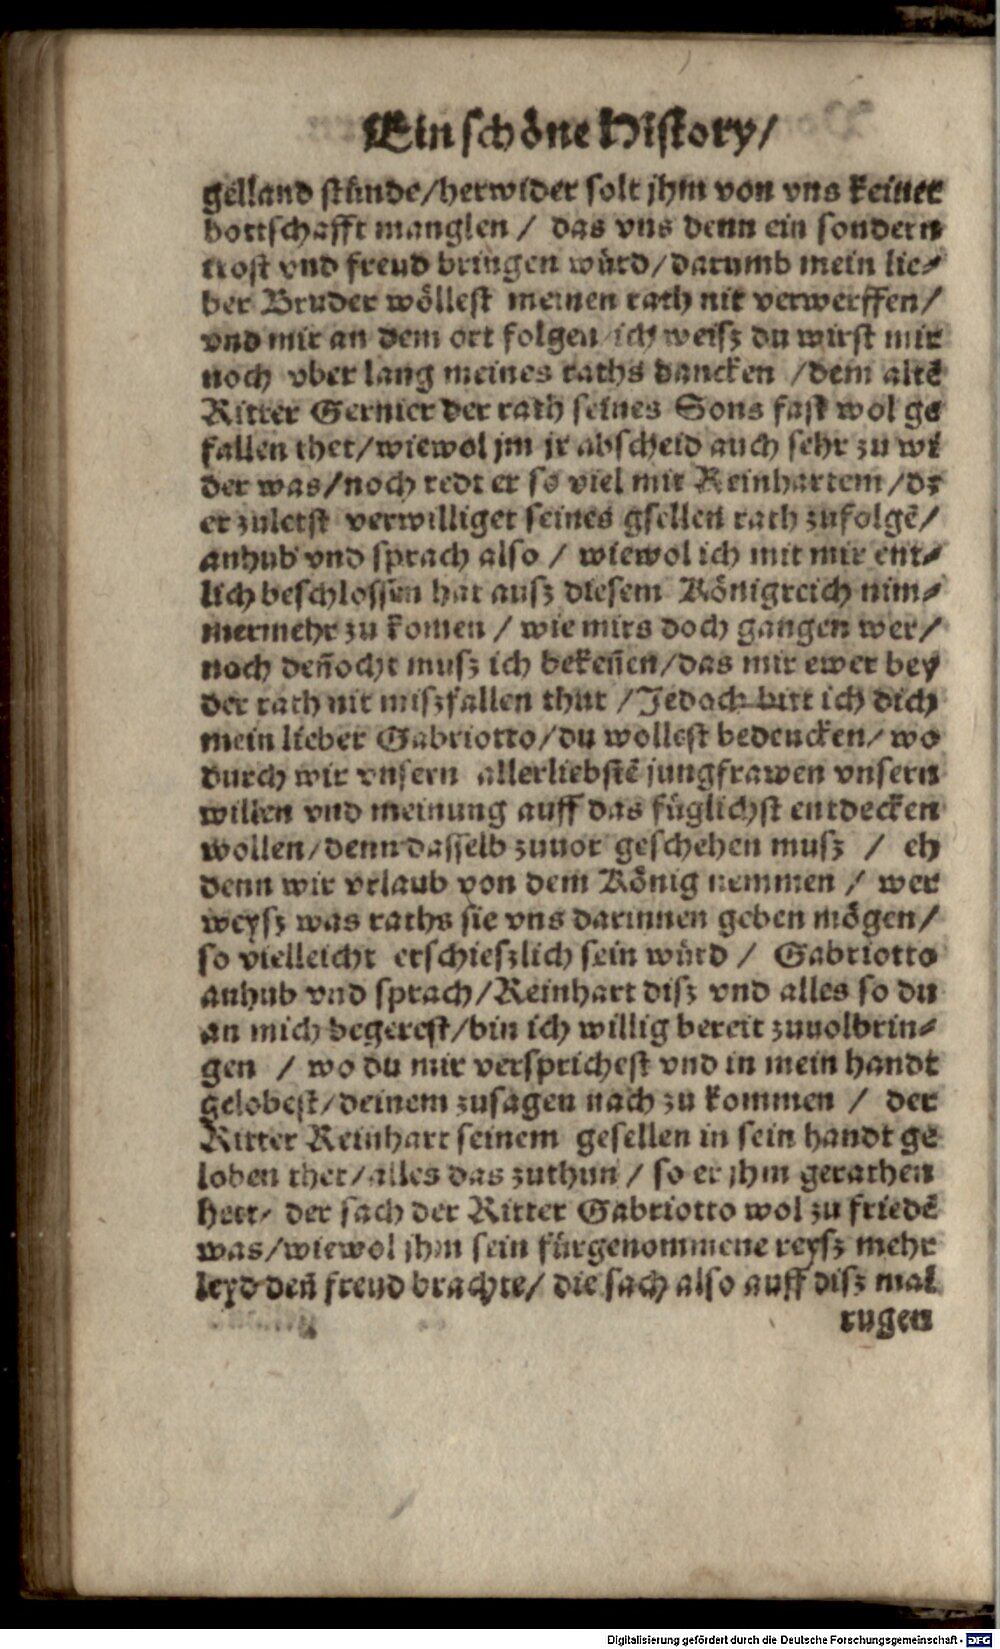 Ein schöne History/
gelland stünde/herwider solt jhm von vns keiner
bottschafft manglen / das vns denn ein sondern
trost vnd freud bringen würd/darumb mein lie-
ber Bruder wöllest meinen rath nit verwerffen/
vnd mir an dem ort folgen/ich weisz du wirst mir
noch vber lang meines raths dancken /dem altẽ
Ritter Gernier der rath seines Sons fast wol ge
fallen thet/wiewol jm jr abscheid auch sehr zu wi
der was/noch redt er so viel mit Reinhartem/dz
er zuletst verwilliget seines gsellen rath zufolgẽ/
anhub vnd sprach also / wiewol ich mit mir ent-
lich beschlossen hat ausz diesem Königreich nim-
mermehr zu komen / wie mirs doch gangen wer/
noch deñocht musz ich bekeñen/das mir ewer bey
der rath nit miszfallen thut /Jedoch bitt ich dich
mein lieber Gabriotto/du wollest bedencken/wo
durch wir vnsern allerliebstẽ jungfrawen vnsern
willen vnd meinung auff das füglichst entdecken
wollen/denn dasselb zuuor geschehen musz / eh
denn wir vrlaub von dem König nemmen / wer
weysz was raths sie vns darinnen geben mögen/
so vielleicht erschieszlich sein würd / Gabriotto
anhub vnd sprach/Reinhart disz vnd alles so du
an mich begerest/bin ich willig bereit zuuolbrin-
gen / wo du mir versprichest vnd in mein handt
gelobest/deinem zusagen nach zu kommen / der
Ritter Reinhart seinem gesellen in sein handt ge
loben thet/alles das zuthun / so er jhm gerathen
hett/ der sach der Ritter Gabriotto wol zu friedẽ
was/wiewol jhm sein fürgenommene reysz mehr
leyd deñ freud brachte/ die sach also auff disz mal
rugen
Digitalisierung gefördert durch die Deutsche Forschungsgemeinschaft - DFG